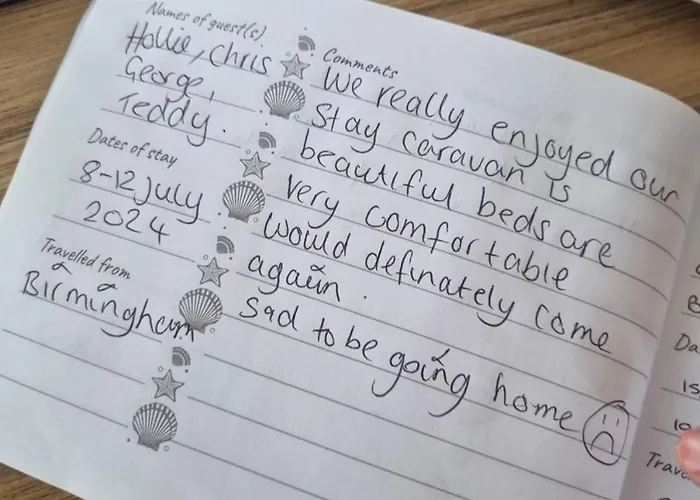 Names of guest(s)
Hollie, Chris
George,
Teddy.
Dates of stay
8-12 July
2024
Travelled from
Birmingham
Comments
We really enjoyed our
Stay caravan is
beautiful beds are
very comfortable
would definately come
again.
Sad to be going home
Da
15
10
Trave